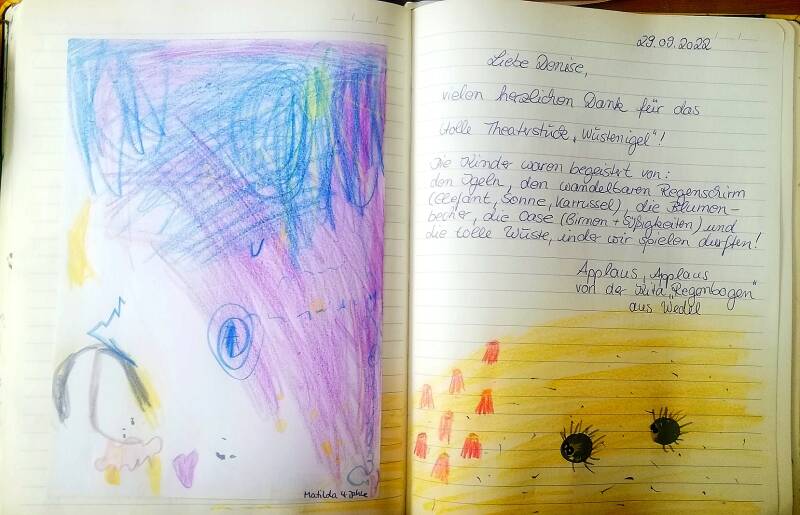 Matilda 4 Jahre
29.09.2022
Liebe Denise,
vielen herzlichen Dank für das
tolle Theaterstück „Wüstenigel"!
Die Kinder waren begeistert von:
den Igeln, den wandelbaren Regenschirm
(Elefant, Sonne, Karrussel), die Blumen-
becher, die Oase (Birnen + Süßigkeiten) und
die tolle Wüste, in der wir spielen durften!
Applaus, Applaus
von der Kita „Regenbogen"
aus Wedel